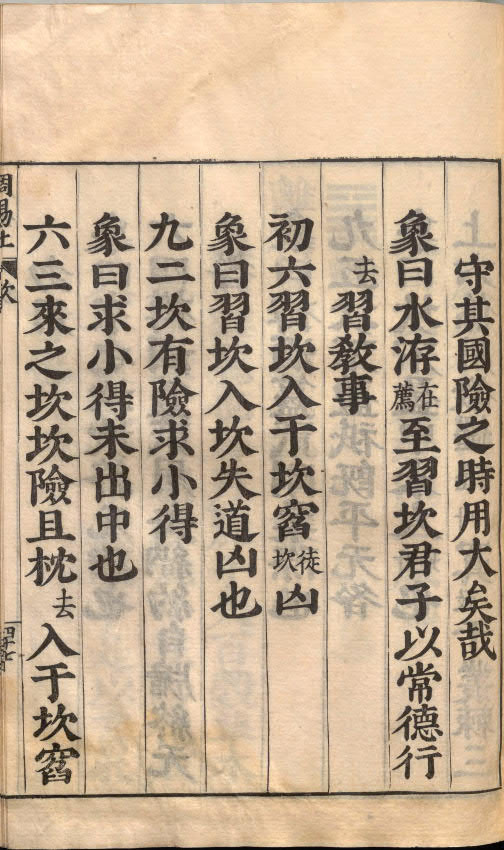 守其國險之時用大矣哉
象曰水洊在薦至習坎君子以常德行
去習教事
初六習坎入于坎窞徒坎凶
象曰習坎入坎失道凶也
九二坎有險求小得
象曰求小得未出中也
六三來之坎坎險且枕去入于坎窞
周易上 坎 四十七